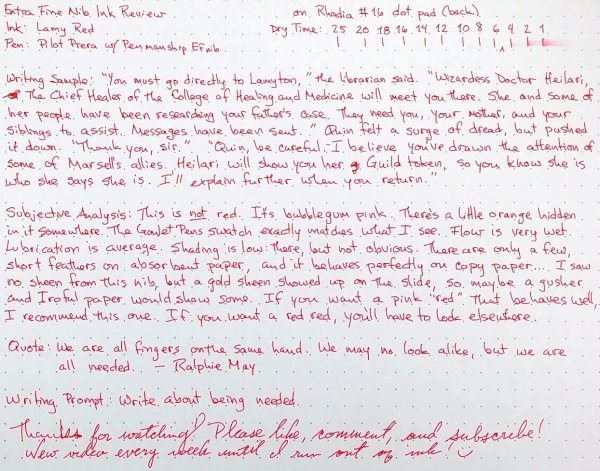 Extra Fine Nib Ink Review
on Rhodia #16 dot pad (back)
Ink: Lamy Red
Dry Time: 25 20 18 16 14 12 10 8 6 4 2 1
Pen: Pilot Prera w/ Penmanship EF nib
Writing Sample: "You must go directly to Lamyton," the librarian said. "Wizardess Doctor Heilari,
The Chief Healer of the College of Healing and Medicine will meet you there. She and some of
her people have been researching your father's case. They need you, your mother, and your
siblings to assist. Messages have been sent." Quin felt a surge of dread, but pushed
it down. "Thank you, sir." "Quin, be careful. I believe you've drawn the attention of
some of Marsell's allies. Heilari will show you her Guild token, so you know she is
who she says she is. I'll explain further when you return."
Subjective Analysis: This is not red. It's bubblegum pink. There's a little orange hidden
in it somewhere. The Goulet Pens swatch exactly matches what I see. Flow is very wet.
Lubrication is average. Shading is low: there, but not obvious. There are only a few,
short feathers on absorbent paper, and it behaves perfectly on copy paper.... I saw
no sheen from this nib, but a gold sheen showed up on the slide, so maybe a gusher
and Iroful paper would show some. If you want a pink "red" that behaves well,
I recommend this one. If you want a red red, you'll have to look elsewhere.
Quote: We are all fingers on the same hand. We may no look alike, but we are
all needed. – Ralphie May
Writing Prompt: Write about being needed.
Thanks for watching! Please like, comment, and subscribe!
New video every week until I run out of ink! :)